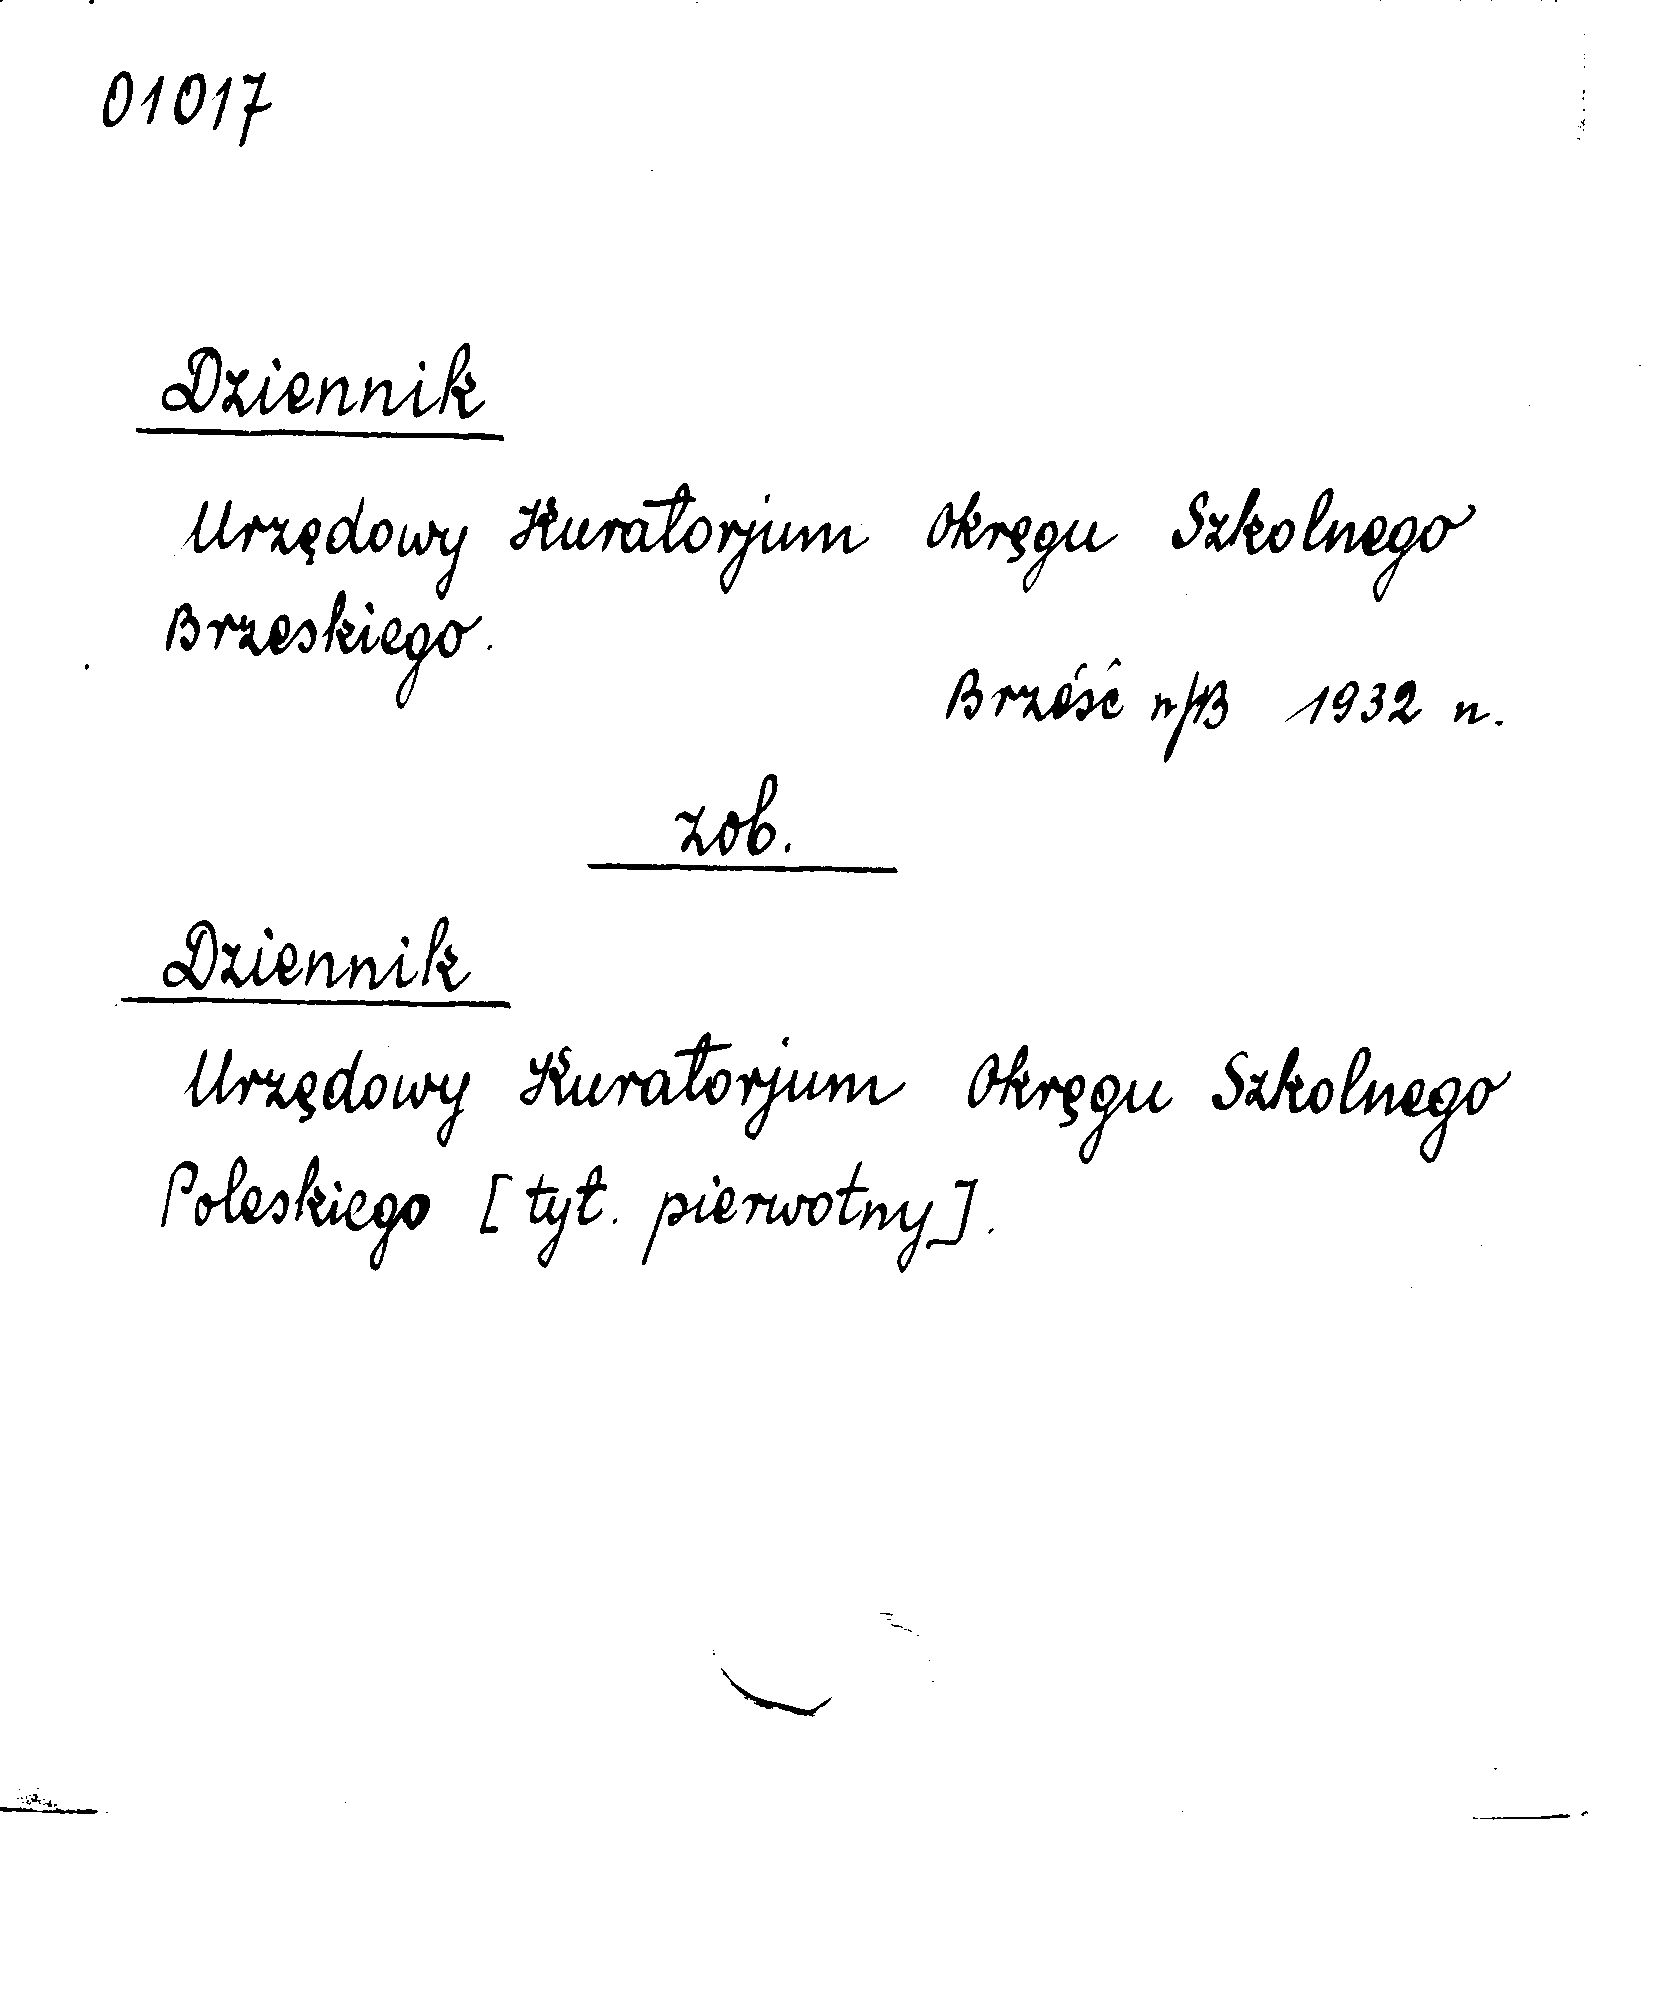 01017
Dziennik
Urzędowy Kuratorjum Okręgu Szkolnego
Brzeskiego.
Brześć n/B 1932 n.
zob.
Dziennik
Urzędowy Kuratorjum Okręgu Szkolnego
Poleskiego [tyt. pierwotny].